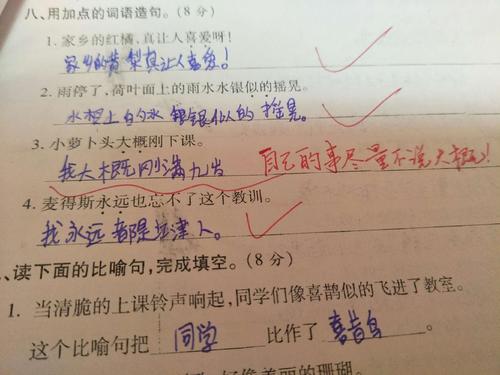 八、用加点的词语造句。(8分)
1. 家乡的红橘,真让人喜爱呀!
家乡的黄梨真让人喜爱!
2. 雨停了,荷叶面上的雨水水银似的摇晃。
水
上的水 银银似的 摇晃。
3. 小萝卜头大概刚下课。
我大概刚满九岁 自己的事尽量不说大概!
4. 麦得斯永远也忘不了这个教训。
我永远都是江津人。
、读下面的比喻句,完成填空。(8分)
1. 当清脆的上课铃声响起,同学们像喜鹊似的飞进了教室。
这个比喻句把 同学 比作了 喜鹊 。
好像美丽的珊瑚。